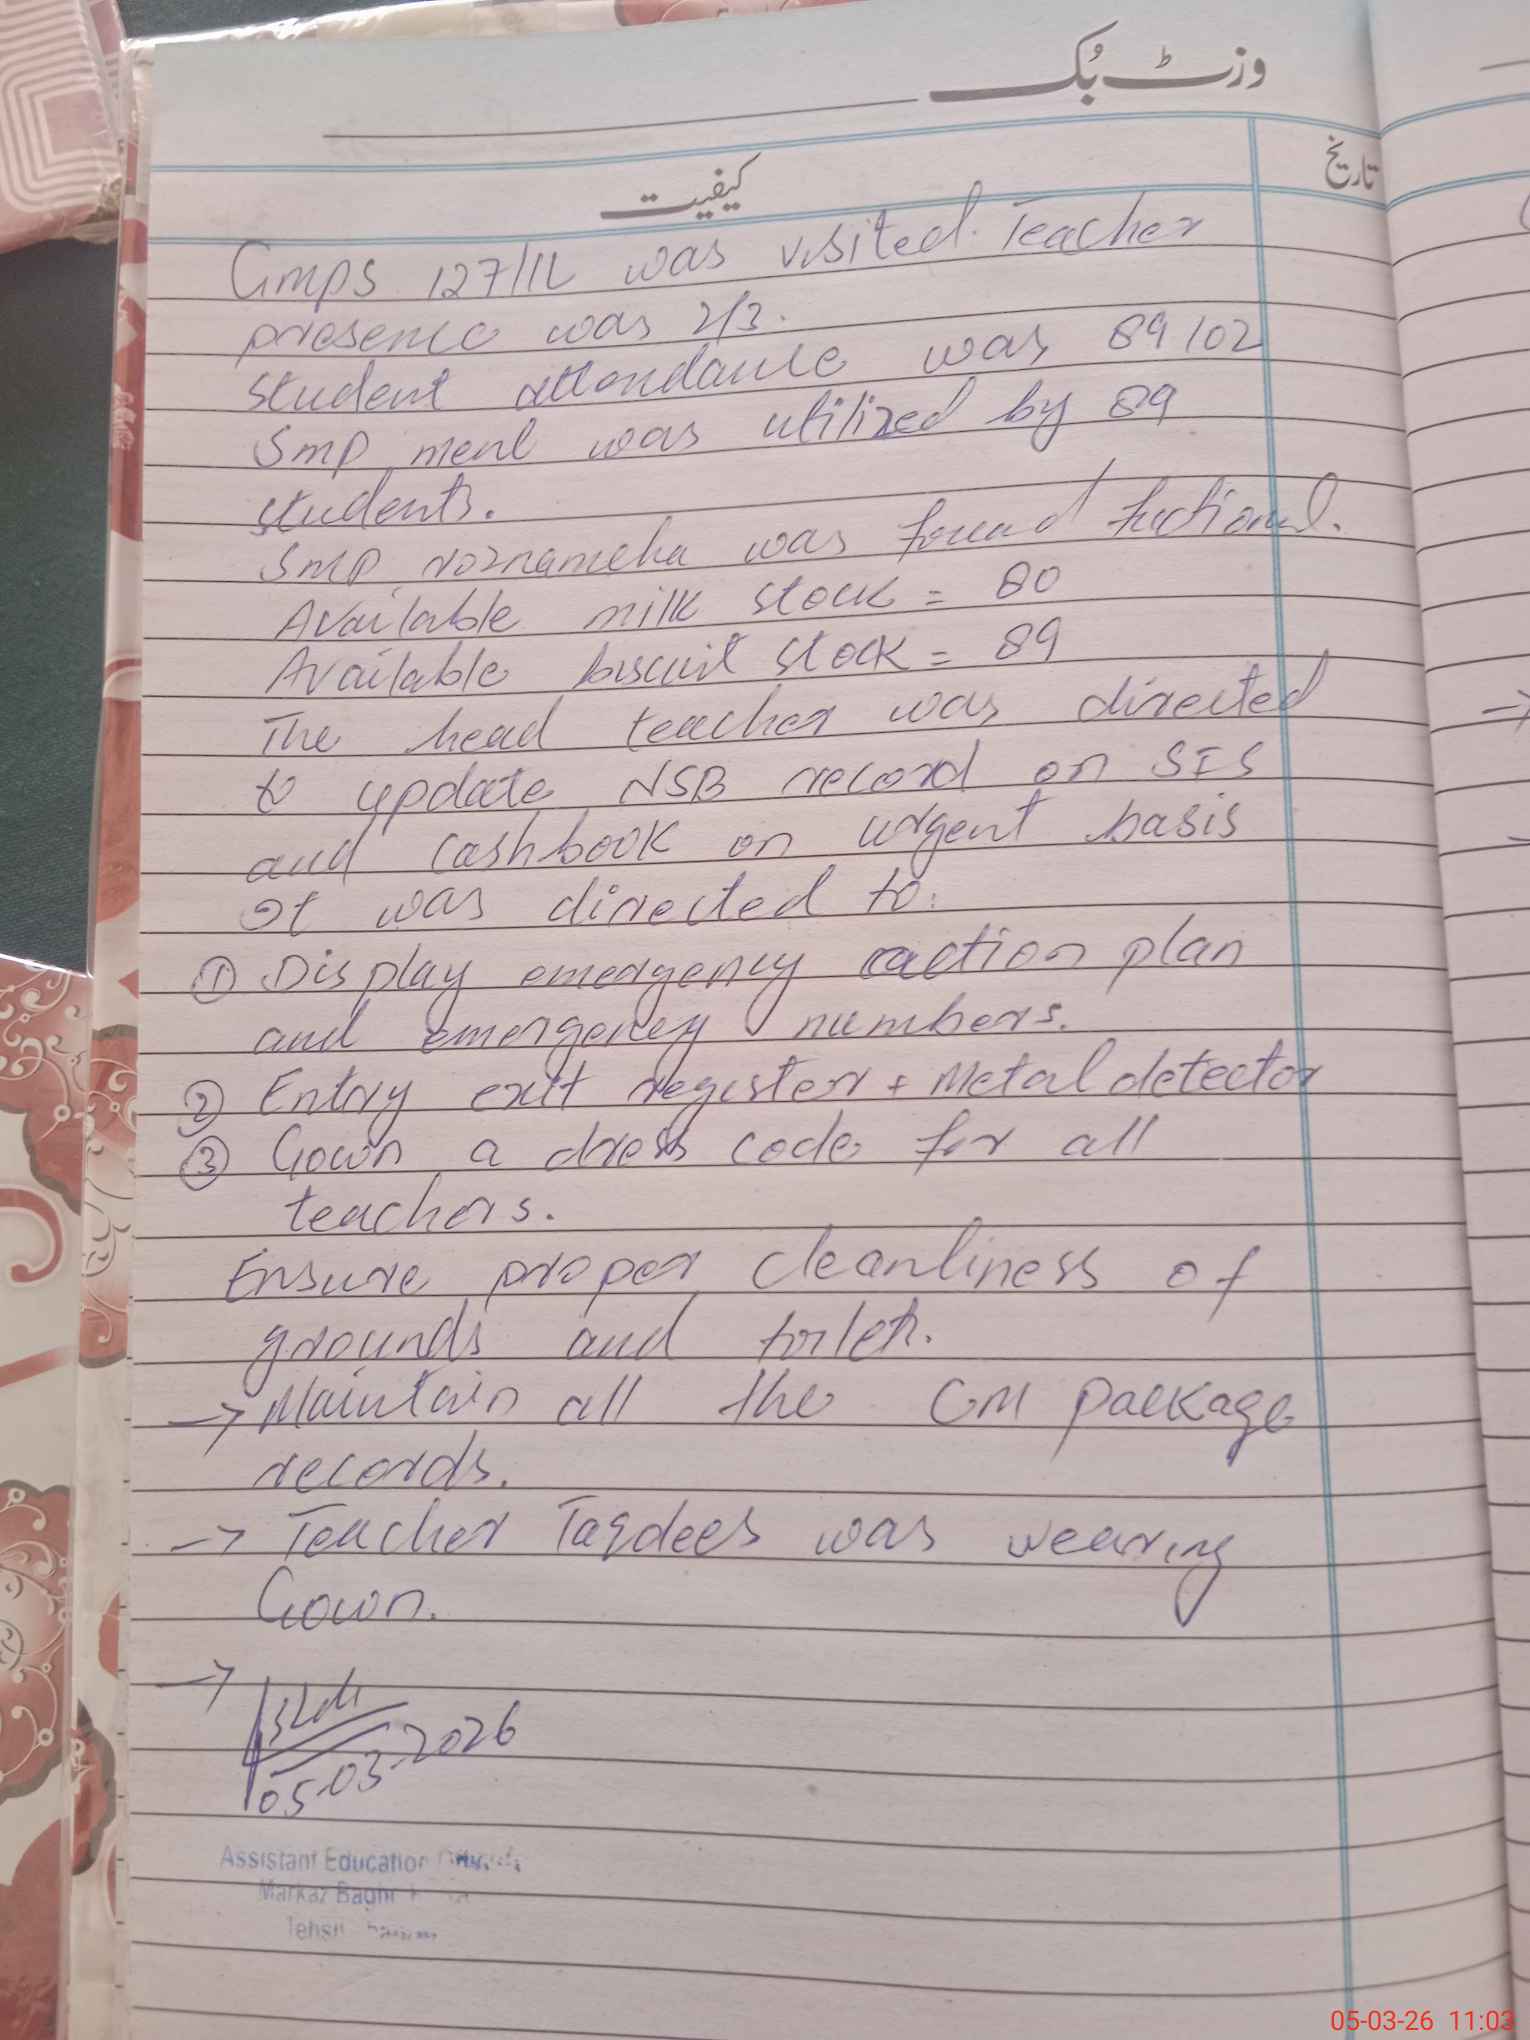 وزٹ بُک
کیفیت
تاریخ
GMPS 127/1L was visited. Teacher
presence was 2/3.
student attendance was 89/102
SMP meal was utilized by 89
students.
SMP roznamcha was found fuctional.
Available milk stock = 80
Available biscuit stock = 89
The head teacher was directed
to update NSB record on SIS
and cashbook on urgent basis
It was directed to:
① Display emergency action plan
and emergency numbers.
② Entry exit register + Metal detector
③ Gown a dress code for all
teachers.
Ensure proper cleanliness of
grounds and toilets.
→ Maintain all the CM package
records.
→ Teacher Taqdees was wearing
Gown.
→
05-03-2026
Assistant Education
Markaz
Tehsil
05-03-26 11:03